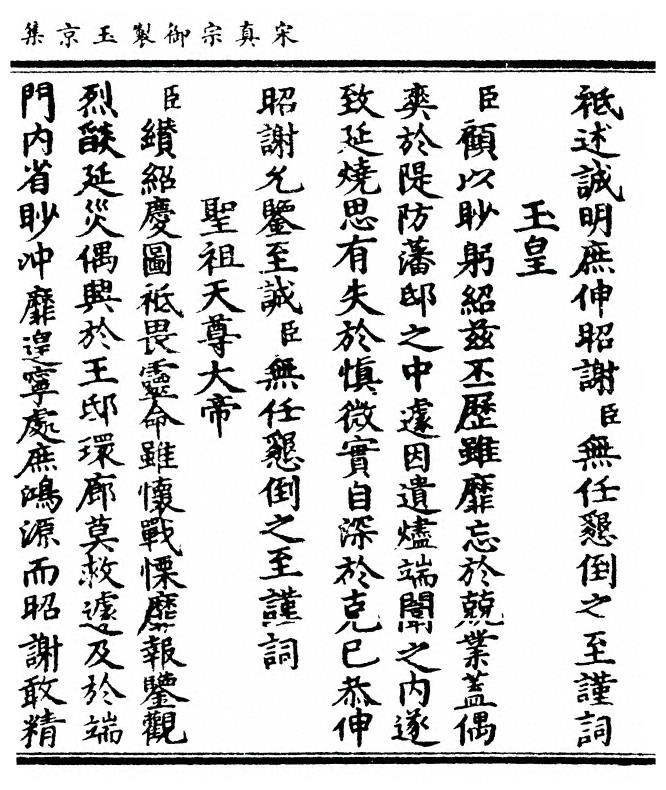 宋真宗御製玉京集
祇述誠明庶伸昭謝臣無任懇倒之至謹詞
玉皇
臣顧以眇躬紹兹丕歷雖靡忘於兢業蓋偶
爽於隄防藩邸之中遽因遺燼端闈之内遂
致延燒思有失於慎微實自深於克己恭伸
昭謝允鑒至誠臣無任懇倒之至謹詞
聖祖天尊大帝
臣纘紹慶圖祗畏靈命雖懷戰慄靡報鑒觀
烈燄延災偶興於王邸環廊莫救遽及於端
門内省眇冲靡遑寧處庶鴻源而昭謝敢精